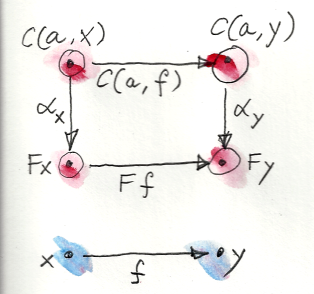 C(a,x) C(a,y)
C(a,f)
αx αy
Fx Ff Fy
x f y